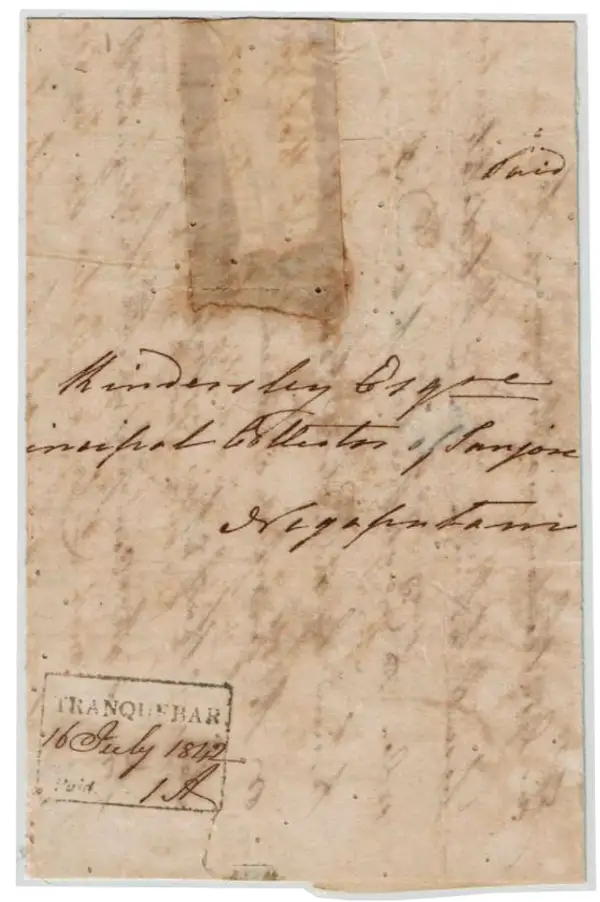 Paid
Kindersley Esqre
incipal Collector of Tanjore
Negapatam
TRANQUEBAR
16 July 1842
Paid 1 A